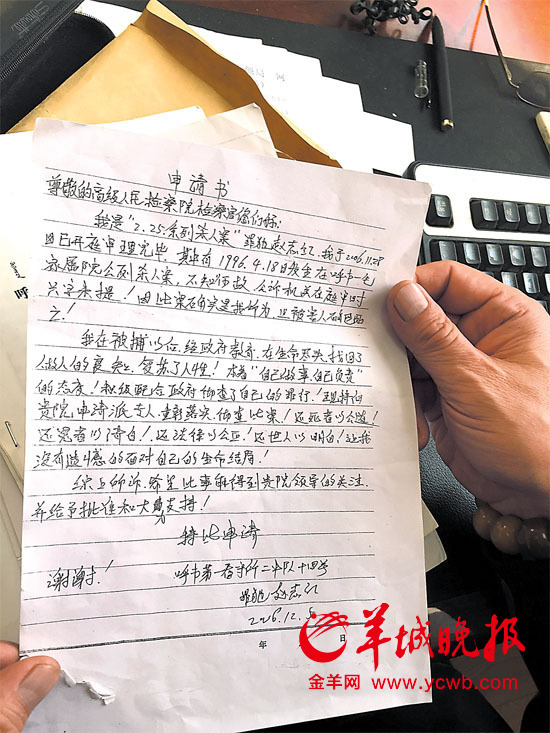 申请书
尊敬的高级人民检察院检察官你们好:
我是"2.25系列杀人案"罪犯赵志红,我于2006.11.28
日已开庭审理完毕!其中有1996.4.18日发生在呼市一毛
家属院公厕杀人案,不知何故,公诉机关在庭审时
只字未提!因此案确实是我所为,且被害人确已死
亡!
我在被捕以后,经政府教育,在生命尽头找回了
做人的良知,复苏了人性!本着"自己做事,自己负责"
的态度!积极配合政府彻查了自己的罪行!现特向
贵院申请派专人重新落实彻查此案!还死者以公道!
还冤者以清白!还法律以公正!还世人以明白!让我
没有遗憾的面对自己的生命结局!
综上所诉,希望此事能得到贵院领导的关注,
并给予批准和大力支持!
特此申请
谢谢!
呼市第一看守所二中队十四号
罪犯赵志红
2006.12.5
年 日
羊城晚报
金羊网 www.ycwb.com
呼